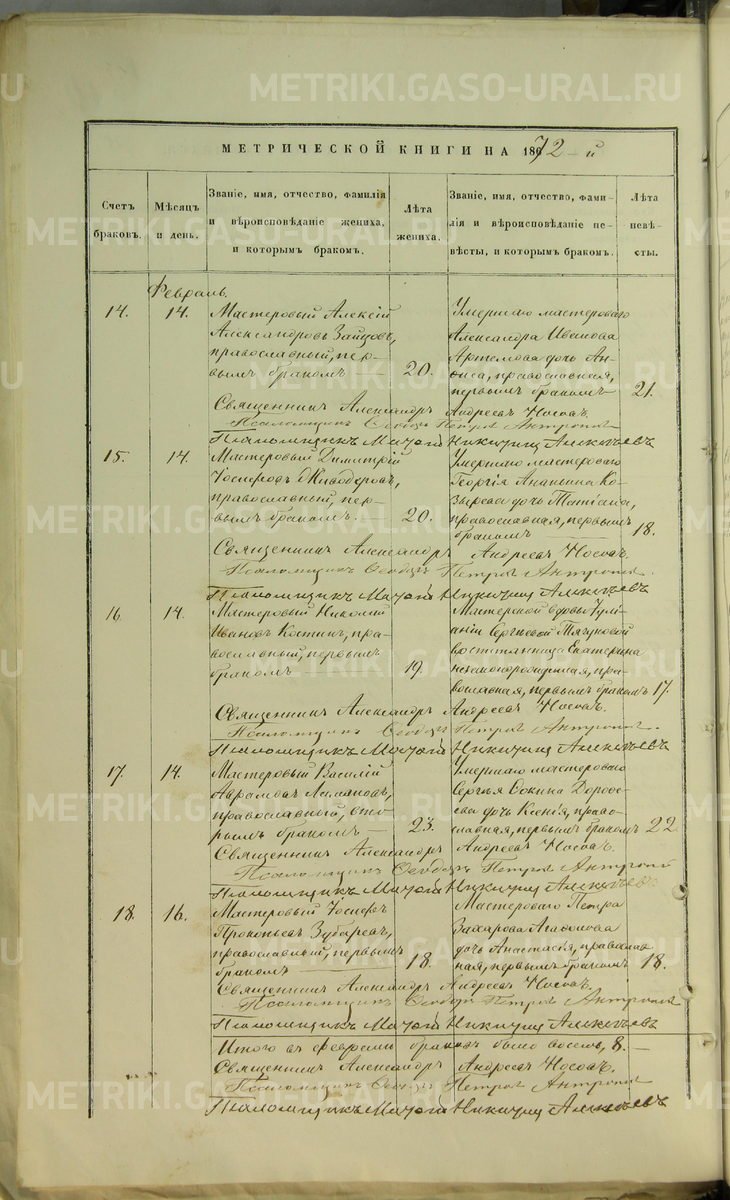 METRIKI.GASO-URAL.RU
МЕТРИЧЕСКОЙ КНИГИ НА 1872-й
Счетъ браковъ.
Мѣсяцъ и день.
Званіе, имя, отчество, фамилія
и вѣроисповѣданіе жениха,
и которымъ бракомъ.
Лѣта жениха.
Званіе, имя, отчество, фами-
лія и вѣроисповѣданіе не-
вѣсты, и которымъ бракомъ.
Лѣта невѣ-
сты.
Февраль.
14. 14.
Мастеровый Алексій
Александровъ Зайцовъ,
православный, пер-
вымъ бракомъ 20.
Умершаго мастероваго
Александра Иванова
дочь Ан-
фиса, православная,
первымъ бракомъ 21.
Священникъ Александръ Андреевъ Носовъ.
Псаломщикъ Ѳеодоръ Петровъ
Псаломщикъ Никитинъ Алексѣевъ
15. 14.
Мастеровый Димитрій
Іосифовъ
православный, пер-
вымъ бракомъ. 20.
Умершаго мастероваго
Георгія Ананьина Ко-
зырева дочь Татіана,
православная, первымъ
бракомъ 18.
Священникъ Александръ Андреевъ Носовъ.
Псаломщикъ Ѳеодоръ Петровъ
Псаломщикъ Никитинъ Алексѣевъ
16. 14.
Мастеровый Николай
Ивановъ Костинъ, пра-
вославный, первымъ
бракомъ 19.
Мастерской вдовы Іулі-
аніи Сергѣевой Тягуновой
воспитанница Екатерина
незаконорожденная, пра-
вославная, первымъ бракомъ 17.
Священникъ Александръ Андреевъ Носовъ.
Псаломщикъ Ѳеодоръ Петровъ
Псаломщикъ Никитинъ Алексѣевъ
17. 14.
Мастеровый Василій
Аврамовъ
православный, вто-
рымъ бракомъ 23.
Умершаго мастероваго
Сергѣя Фокина Дорофе-
ева дочь Ксенія, право-
славная, первымъ бракомъ 22
Священникъ Александръ Андреевъ Носовъ.
Псаломщикъ Ѳеодоръ Петровъ
Псаломщикъ Никитинъ Алексѣевъ
18. 16.
Мастеровый Іосифъ
Прокопьевъ Зубаревъ,
православный, первымъ
бракомъ 18.
Мастероваго Петра
Захарова Агафонова
дочь Анастасія, православ-
ная, первымъ бракомъ 18.
Священникъ Александръ Андреевъ Носовъ.
Псаломщикъ Ѳеодоръ Петровъ
Псаломщикъ Никитинъ Алексѣевъ
Итого въ февралѣ браковъ было восемь, 8.
Священникъ Александръ Андреевъ Носовъ.
Псаломщикъ Ѳеодоръ Петровъ
Псаломщикъ Никитинъ Алексѣевъ